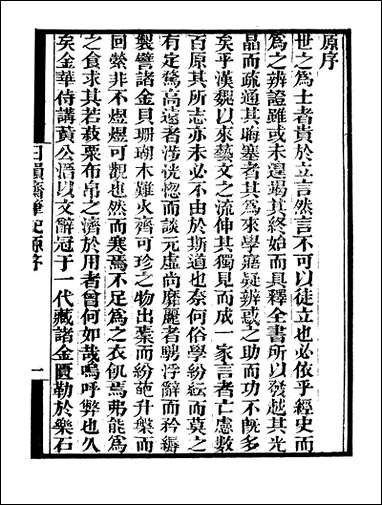 原序
世之為士者貴於立言然言不可以徒立也必依乎經史而
為之辨證雖或未遑竭其終始而具釋全書所以發越其光
晶而疏通其晦塞者其為來學寤疑辨惑之助而功不旣多
矣乎漢魏以來藝文之流伸其獨見而成一家言者亡慮數
百原其所志亦未必不有於斯道也奈何俗學紛紜而莫之
有定騖高遠者涉洸惚而談元虛尚靡麗者騁浮辭而矜
製譬諸金貝珊瑚木難火齊可珍之物出葉而紛葩升槃而
回縈非不煜煜可觀也然而寒焉不足為之衣飢焉弗能為
之食求其若菽粟布帛之濟於用者曾何如哉嗚呼弊也久
矣金華侍講黃公溍以文辭冠于一代藏諸金匱勒於樂石
日損齋筆記原序
一